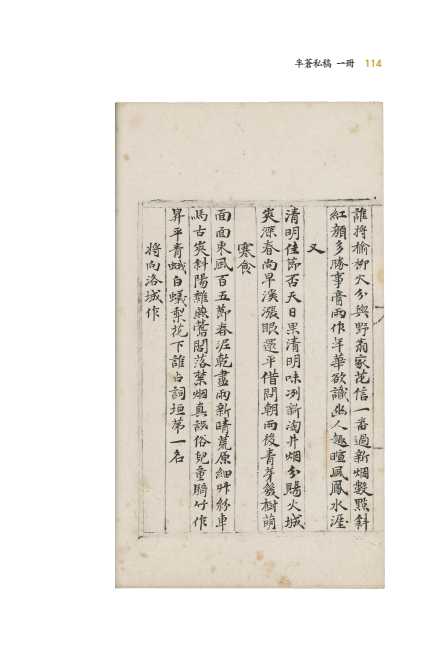 半蒼私稿 一冊 114
誰將榆柳火分與野翁家花信一番過新烟數點斜
紅顏多勝事膏雨作年華欲識幽人趣暄風鳳水涯
又
清明佳節否天日果清明味冽新淘井烟分賜火城
爽深春尚早溪漲眼還平借問朝雨後青芽幾樹萌
寒食
面面東風百五節春泥乾盡雨新晴荒原細艸紛車
馬古峴斜陽雜燕鶯閣落禁烟真誤俗兒童騎竹作
昇平青蛾白蟻梨花下誰占詞垣第一名
將向洛城作